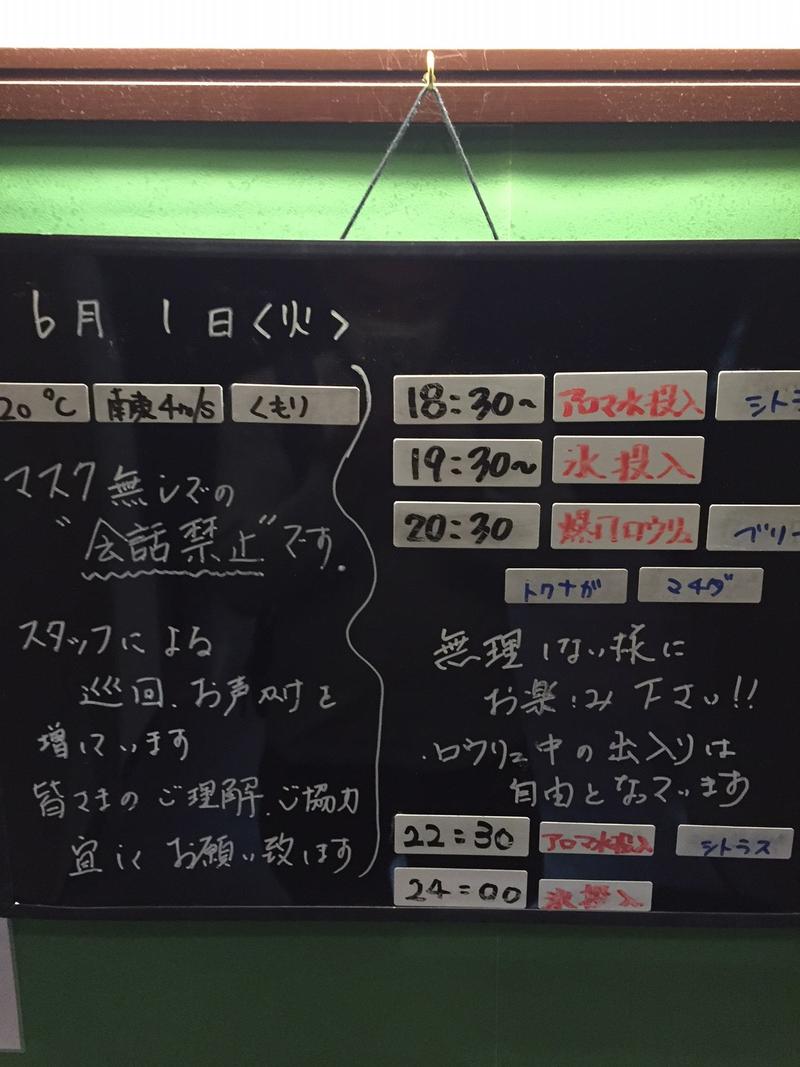 6月 1日<火>
20℃ 南東4m/s くもり
マスク無しでの
"会話禁止"です.
スタッフによる
巡回、お声がけを
増しています
皆さまのご理解、ご協力
宜しくお願い致します
18:30~ アロマ水投入 シトラ
19:30~ 氷投入
20:30 爆円ロウリュ ブリー
トクナガ マチダ
無理しない様に
お楽しみ下さい!!
・ロウリュ中の出入りは
自由となっています
22:30 アロマ水投入 シトラス
24:00 氷投入